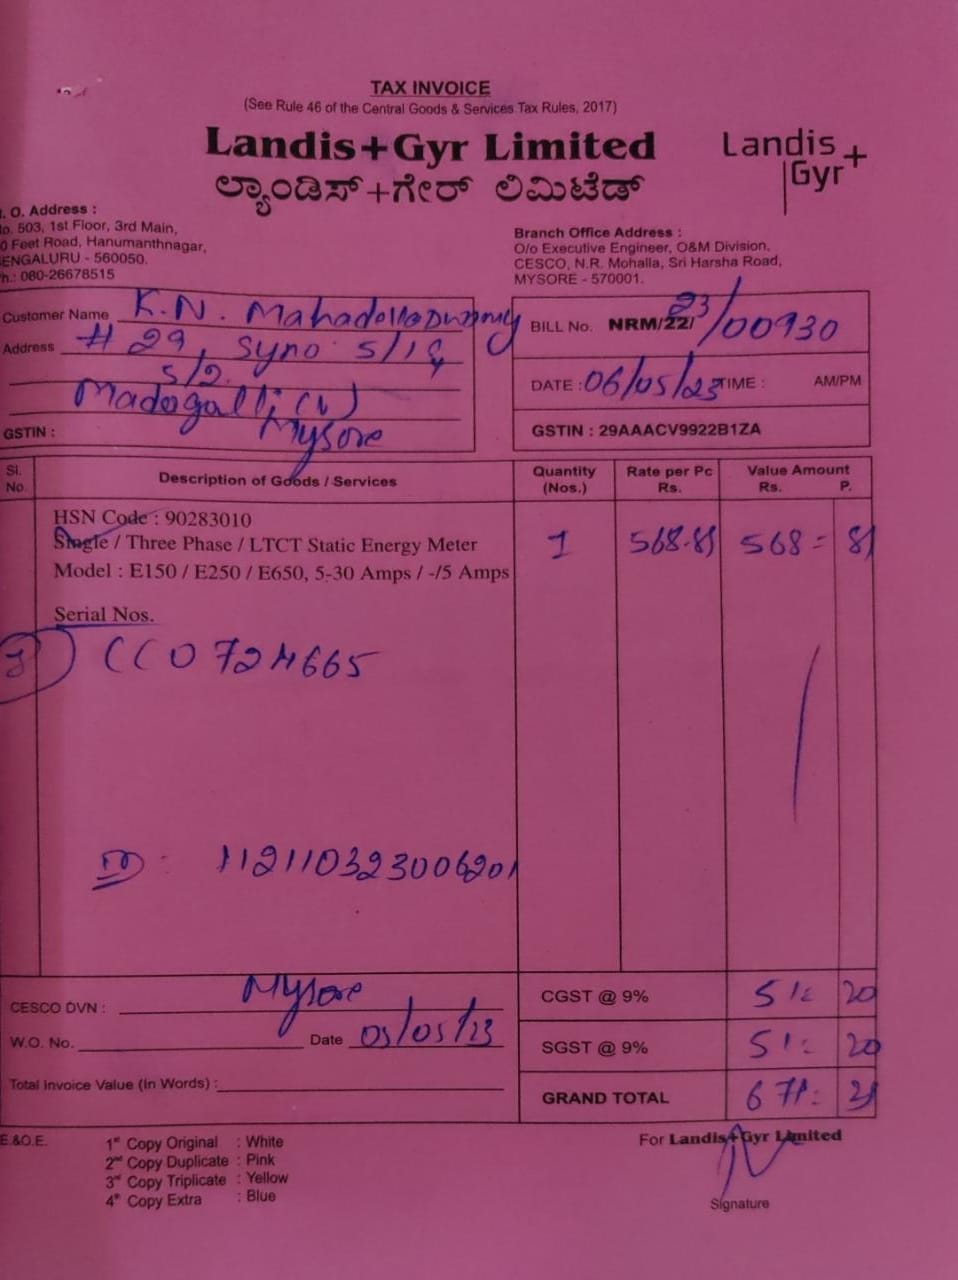 TAX INVOICE
(See Rule 46 of the Central Goods & Services Tax Rules, 2017)
Landis+Gyr Limited
ಲ್ಯಾಂಡಿಸ್+ಗೇರ್ ಲಿಮಿಟೆಡ್
Landis+
Gyr
. O. Address :
o. 503, 1st Floor, 3rd Main,
0 Feet Road, Hanumanthnagar,
ENGALURU - 560050.
h.: 080-26678515
Branch Office Address :
O/o Executive Engineer, O&M Division,
CESCO, N.R. Mohalla, Sri Harsha Road,
MYSORE - 570001.
Customer Name K.N.
Address # 29, Syno 5/19
5/2.
Madagalli (V)
GSTIN : Mysore
BILL No. NRM/22/23/00930
DATE : 06/05/23 TIME : AM/PM
GSTIN : 29AAACV9922B1ZA
Sl. No. Description of Goods / Services Quantity (Nos.) Rate per Pc Rs. Value Amount Rs. P.
HSN Code : 90283010
Single / Three Phase / LTCT Static Energy Meter 1 568.81 568 = 81
Model : E150 / E250 / E650, 5-30 Amps / -/5 Amps
Serial Nos.
1) CC0724665
: 112110323006201
CESCO DVN : Mysore
W.O. No. Date 05/05/23
Total Invoice Value (In Words) :
CGST @ 9% 51= 20
SGST @ 9% 51= 20
GRAND TOTAL 671= 21
E.&O.E.
1st Copy Original : White
2nd Copy Duplicate : Pink
3rd Copy Triplicate : Yellow
4th Copy Extra : Blue
For Landis+Gyr Limited
Signature